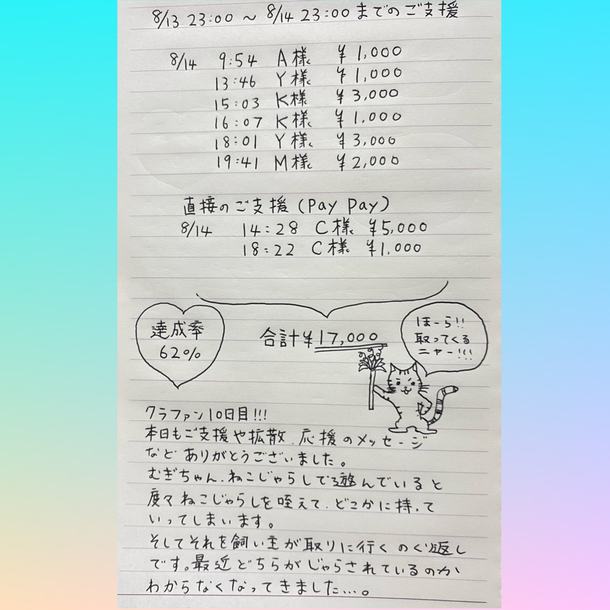 8/13 23:00 〜 8/14 23:00 までのご支援
8/14 9:54 A様 ¥1,000
13:46 Y様 ¥1,000
15:03 K様 ¥3,000
16:07 K様 ¥1,000
18:01 Y様 ¥3,000
19:41 M様 ¥2,000
直接のご支援(Pay Pay)
8/14 14:28 C様 ¥5,000
18:22 C様 ¥1,000
達成率
62%
合計¥17,000
ほーら!!
取ってくる
ニャー!!!
クラファン10日目!!!
本日もご支援や拡散、応援のメッセージ
など ありがとうございました。
むぎちゃん、ねこじゃらしで遊んでいると
度々ねこじゃらしを咥えて、どこかに持って
いってしまいます。
そしてそれを飼い主が取りに行く のくり返し
です。最近どちらがじゃらされているのか
わからなくなってきました…。